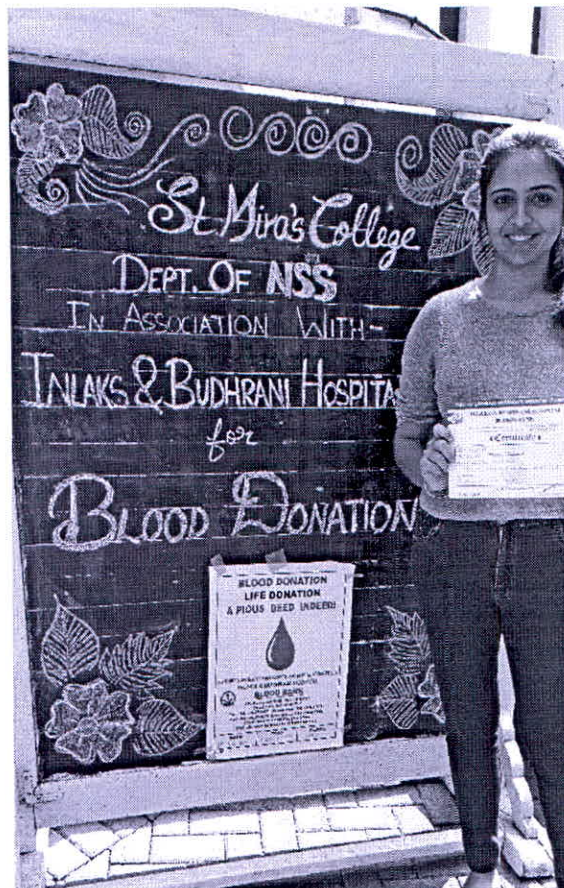 St Mira's College
DEPT. OF NSS
IN ASSOCIATION WITH-
INLAKS & BUDHRANI HOSPITA
for
BLOOD DONATION
BLOOD DONATION
LIFE DONATION
A PIOUS DEED INDEED!
BLOOD BANK
Certificate